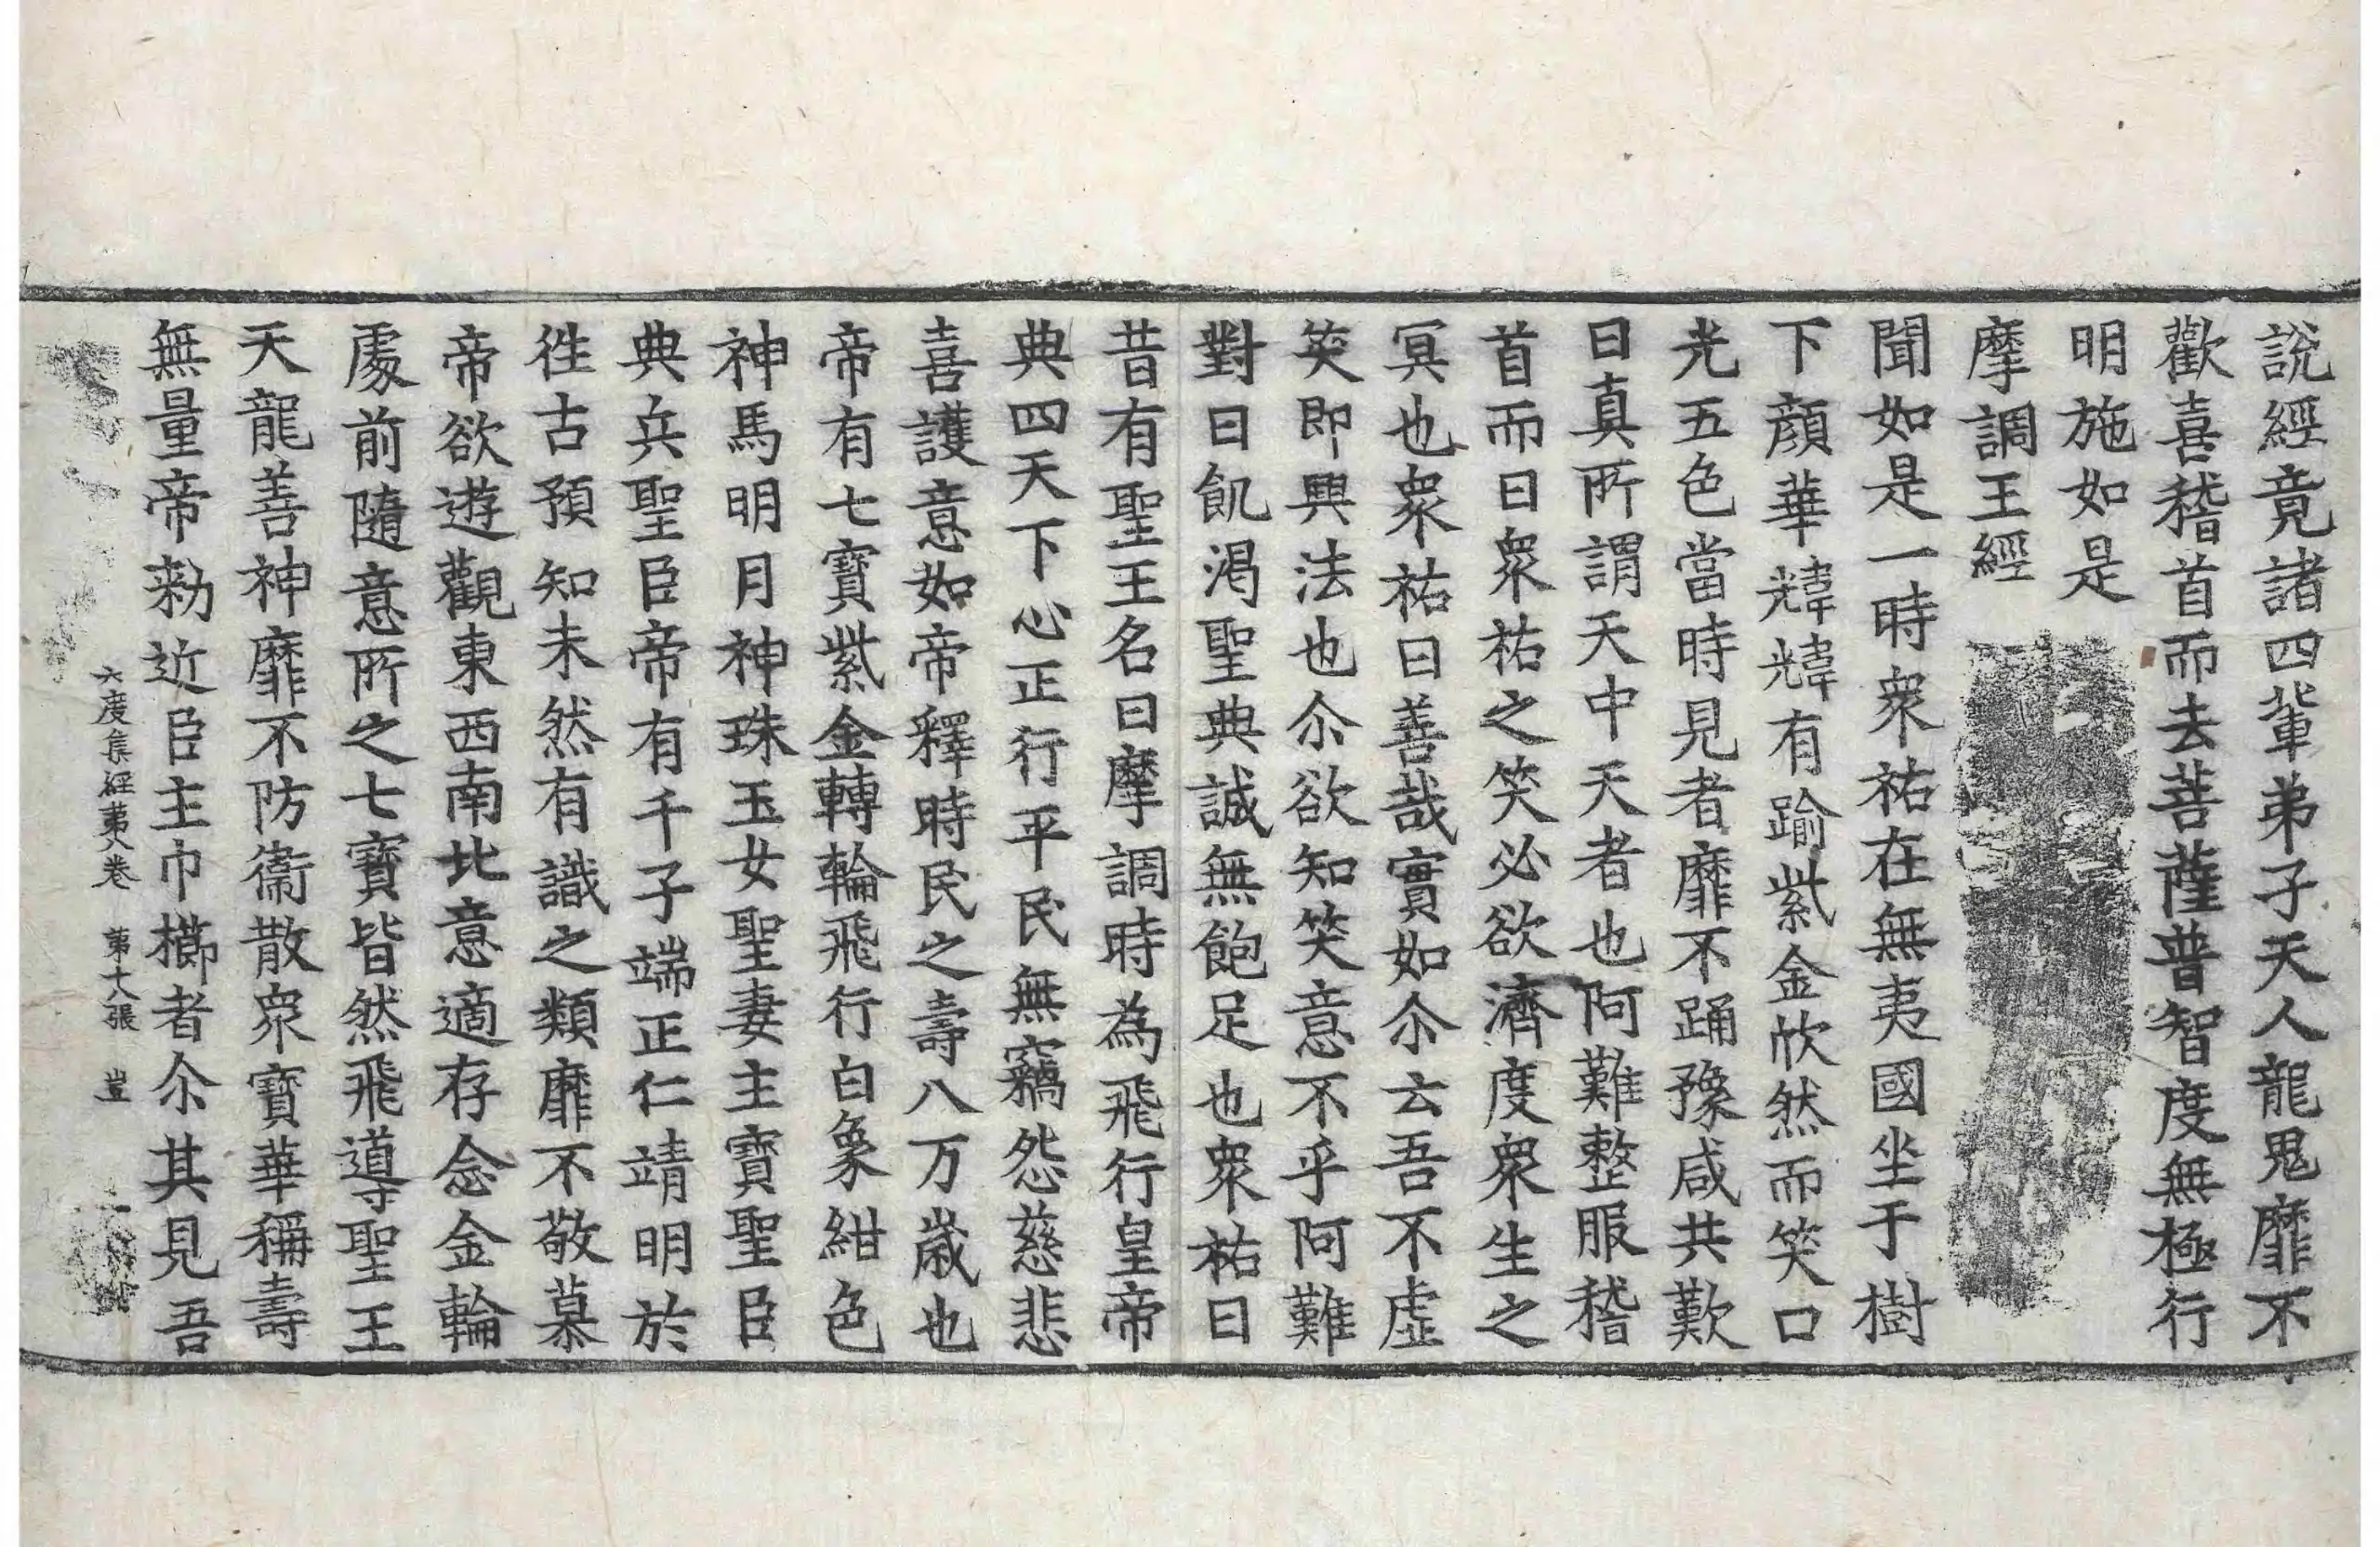 說經竟諸四軰弟子天人龍鬼靡不
歡喜稽首而去菩薩普智度無極行
明施如是
摩調王經
聞如是一時衆祐在無夷國坐于樹
下顏華煒煒有踰紫金欣然而笑口
光五色當時見者靡不踊豫咸共歎
曰真所謂天中天者也阿難整服稽
首而曰衆祐之笑必欲濟度衆生之
冥也衆祐曰善哉實如尒云吾不虛
笑即興法也尒欲知笑意不乎阿難
對曰飢渴聖典誠無飽足也衆祐曰
昔有聖王名曰摩調時為飛行皇帝
典四天下心正行平民無竊怨慈悲
喜護意如帝釋時民之壽八万歲也
帝有七寶紫金轉輪飛行白象紺色
神馬明月神珠玉女聖妻主寶聖臣
典兵聖臣帝有千子端正仁靖明於
徃古預知未然有識之類靡不敬慕
帝欲遊觀東西南北意適存念金輪
處前隨意所之七寶皆然飛導聖王
天龍善神靡不防衞散衆寶華稱壽
無量帝勑近臣主巾櫛者尒其見吾
六度集經苐八卷　苐十八張　豈